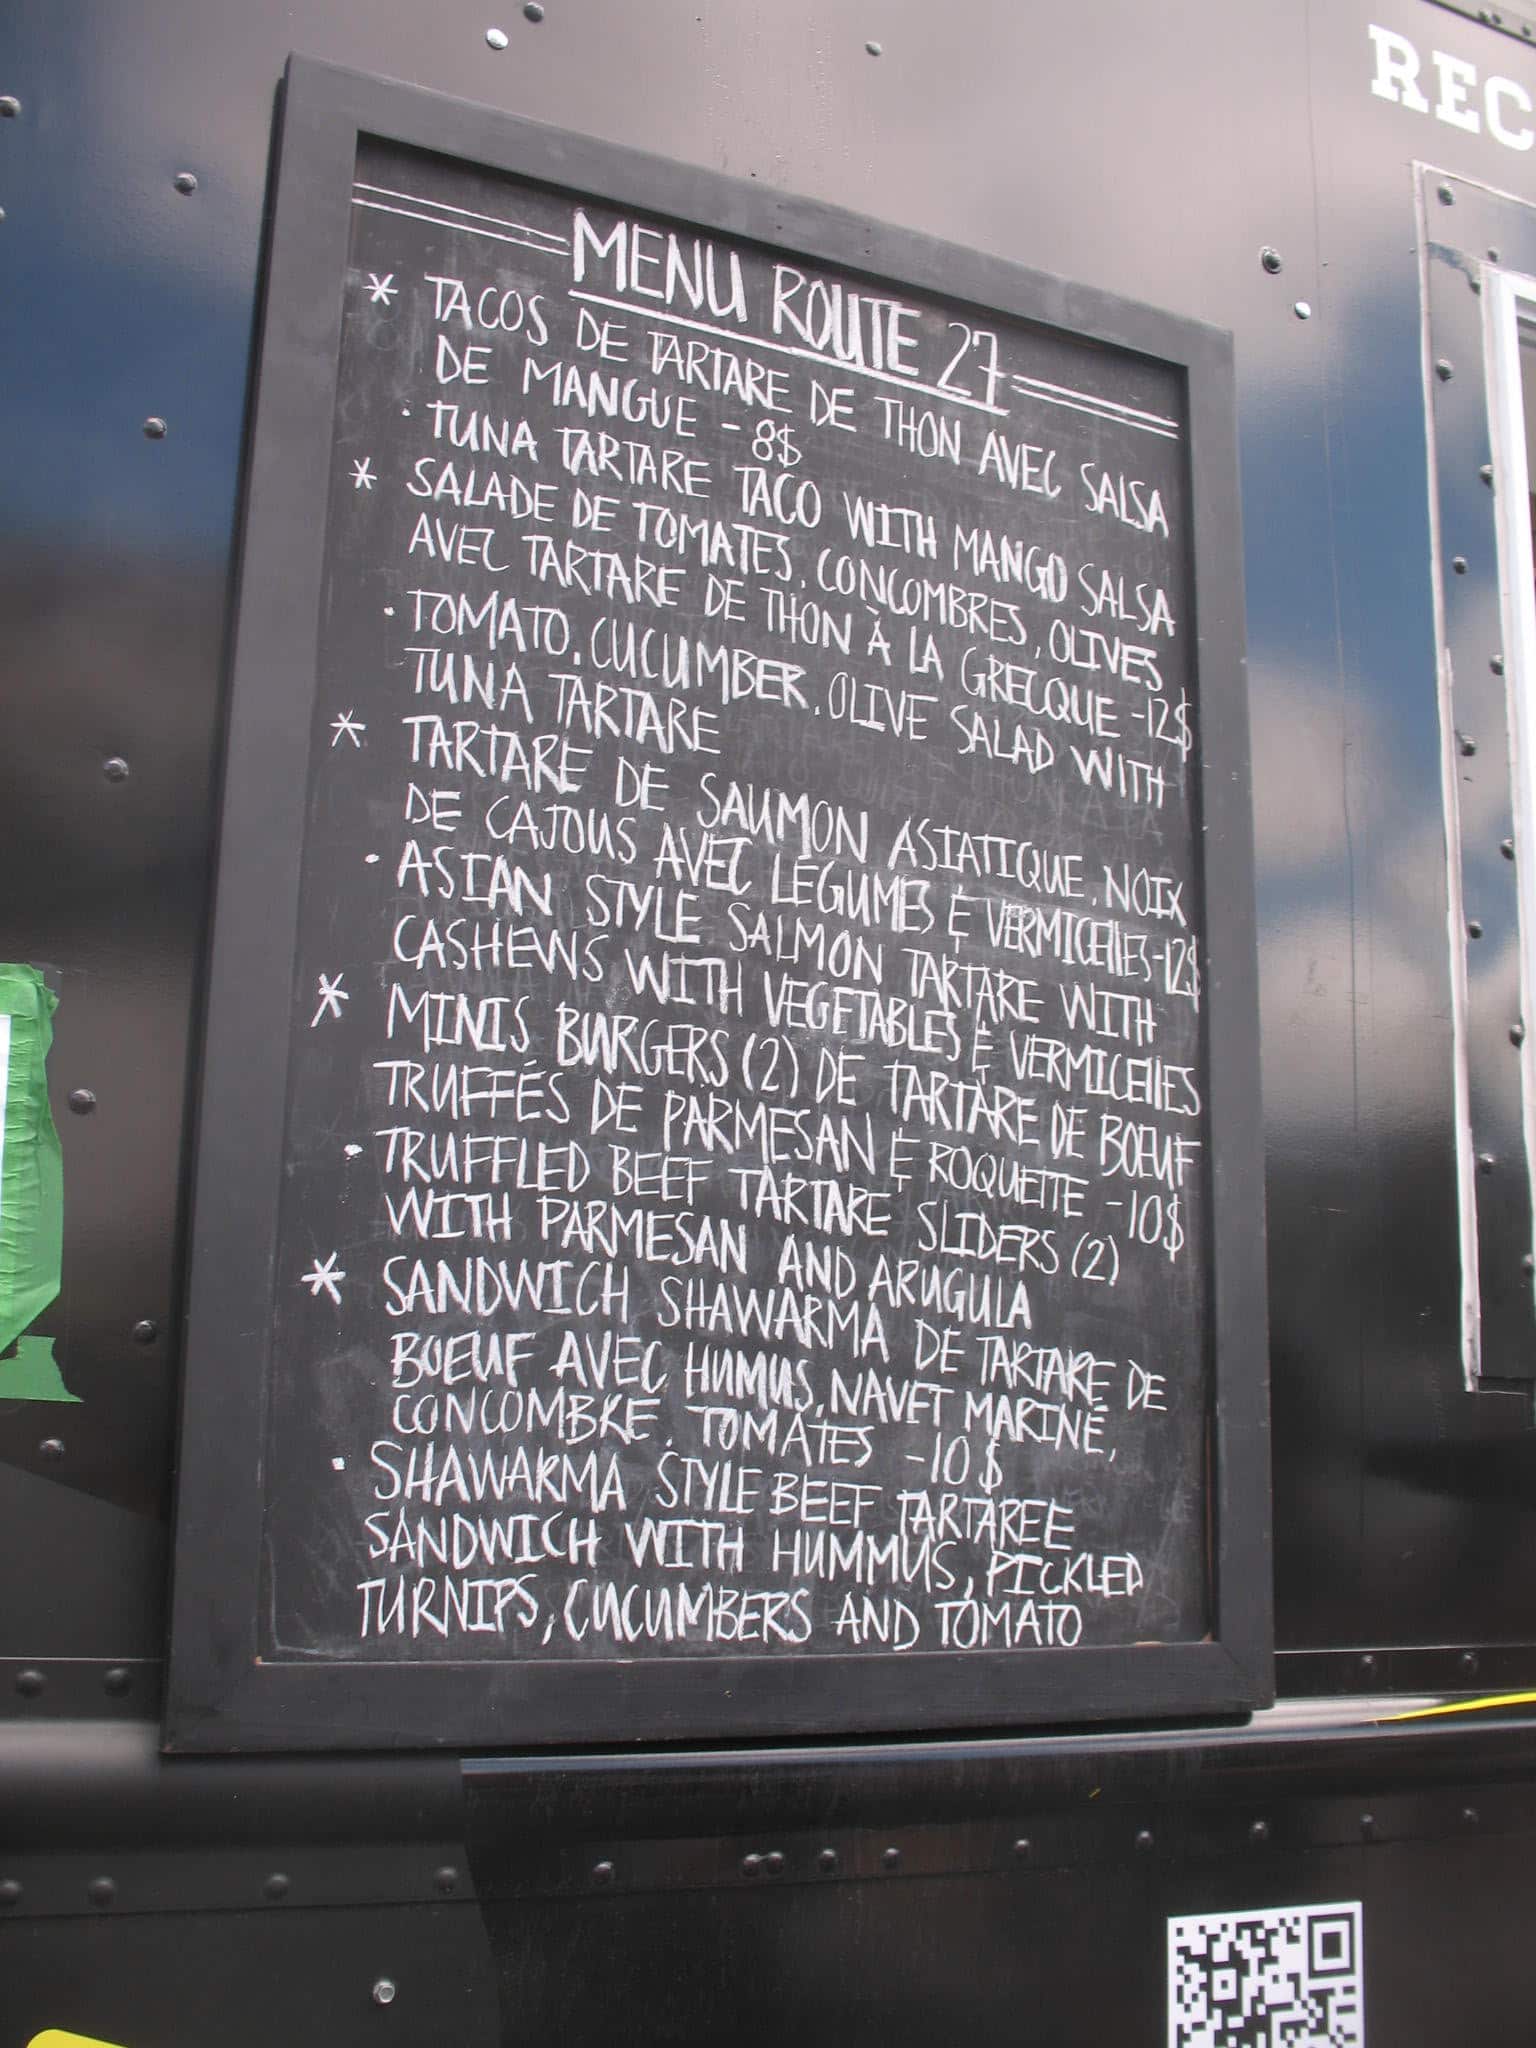 REC
MENU ROUTE 27
* TACOS DE TARTARE DE THON AVEC SALSA
DE MANGUE - 8$
· TUNA TARTARE TACO WITH MANGO SALSA
* SALADE DE TOMATES, CONCOMBRES, OLIVES
AVEC TARTARE DE THON À LA GRECQUE -12$
· TOMATO, CUCUMBER, OLIVE SALAD WITH
TUNA TARTARE
* TARTARE DE SAUMON ASIATIQUE, NOIX
DE CAJOUS AVEC LÉGUMES & VERMICELLES-12$
· ASIAN STYLE SALMON TARTARE WITH
CASHEWS WITH VEGETABLES & VERMICELLES
* MINIS BURGERS (2) DE TARTARE DE BOEUF
TRUFFÉS DE PARMESAN & ROQUETTE -10$
· TRUFFLED BEEF TARTARE SLIDERS (2)
WITH PARMESAN AND ARUGULA
* SANDWICH SHAWARMA DE TARTARE DE
BOEUF AVEC HUMUS, NAVET MARINÉ,
CONCOMBRE, TOMATES -10$
· SHAWARMA STYLE BEEF TARTAREE
SANDWICH WITH HUMMUS, PICKLED
TURNIPS, CUCUMBERS AND TOMATO